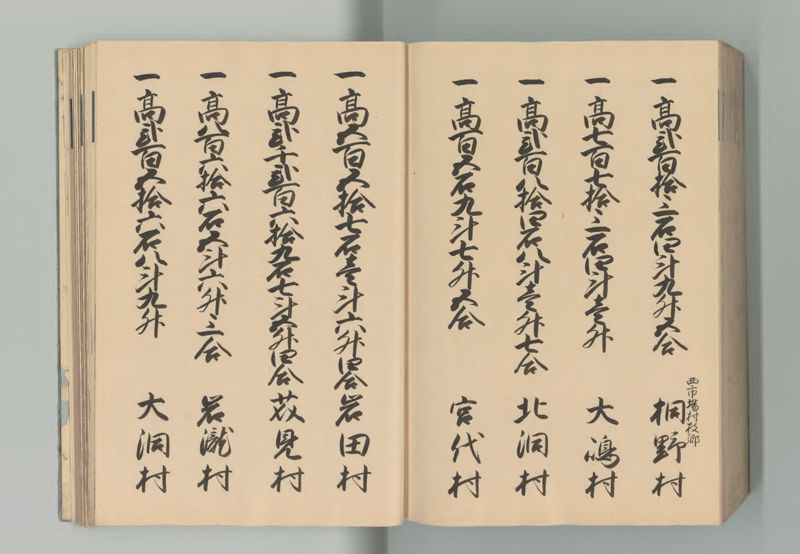 一高弐百拾三石四斗九升五合 西市場村枝郷 桐野村
一高七百七拾三石四斗壱升 大嶋村
一高弐百八拾四石八斗壱升七合 北洞村
一高百五石九斗七升五合 宮代村
一高五百五拾七石壱斗六升四合 岩田村
一高弐千弐百六拾九石七斗五升四合 芥見村
一高八百六拾六石五斗六升三合 岩瀧村
一高弐百五拾六石八斗九升 大洞村